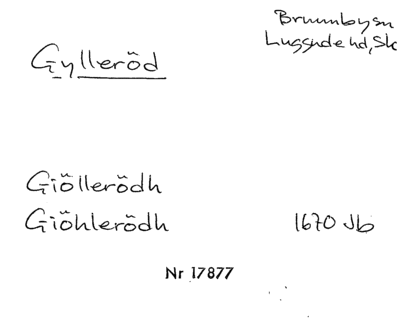 Brunnbysn
Luggude hd, Sk
Gylleröd
Giöllerödh
Giöhlerödh 1670 Jb
Nr 17877